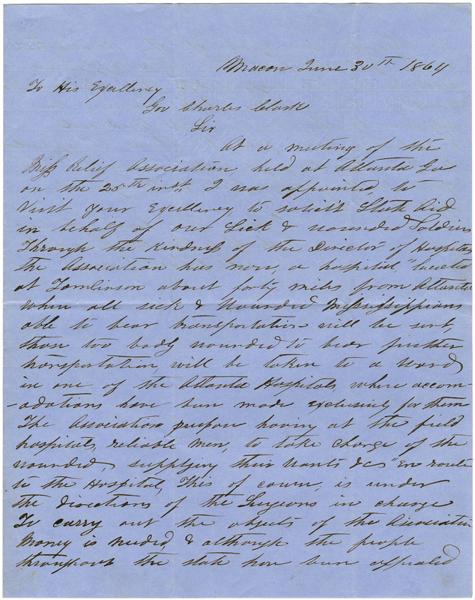 Macon June 30th 1864
To His Excellency
Gov Charles Clark
Sir
At a meeting of the
Miss Relief Association, held at Atlanta Ga
on the 25th inst. I was appointed to
visit your Excellency to solicit State Aid
in behalf of our Sick & wounded Soldiers
Through the kindness of the Director of Hospitals
the Association has now, a hospital, located
at Tomlinson about forty miles from Atlanta
where all sick & wounded Mississippians
able to bear transportation will be sent,
those too badly wounded to bear further
transportation will be taken to a ward
in one of the Atlanta Hospitals, where accom
-adations have been made exclusively for them
The Association purpose having at the field
hospitals, reliable men, to take charge of the
wounded, supplying their wants &c En route
to the Hospital, This of course, is under
the directions of the Surgeons in charge
To carry out the objects of the Association
Money is needed, & although the people
throughout the state have been appealed